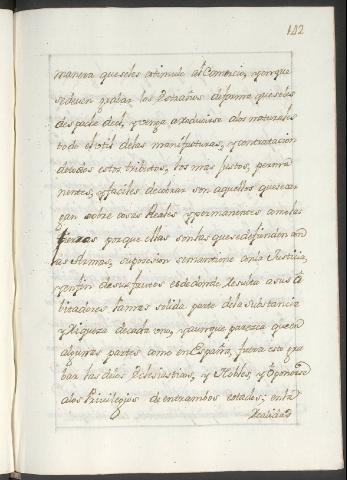 142
manera que seles estimule al Comercio, y en que
se deven gravar los Estraños de forma que seles
despache del, y venga a reducirse a los naturales
todo el util de las manifacturas, y contratacion
de todos estos tributos, los mas justos, perma
nentes, y faciles de cobrar son aquellos que se car
gan sobre cosas Reales y permanentes
porque ellas son las que se defienden con
las Armas, su presion se mantiene en la Justicia,
y en fin de sus frutos es de donde resulta a sus a
bitadores la mas solida parte de la substancia
y Riqueza de cada uno, y aunque parezca que en
algunas partes como en España, fuera esto gra
bar las dies Eclesiasticas, y Nobles, y oponerse
a los Privilegios de entrambos estados; en la
Realidad